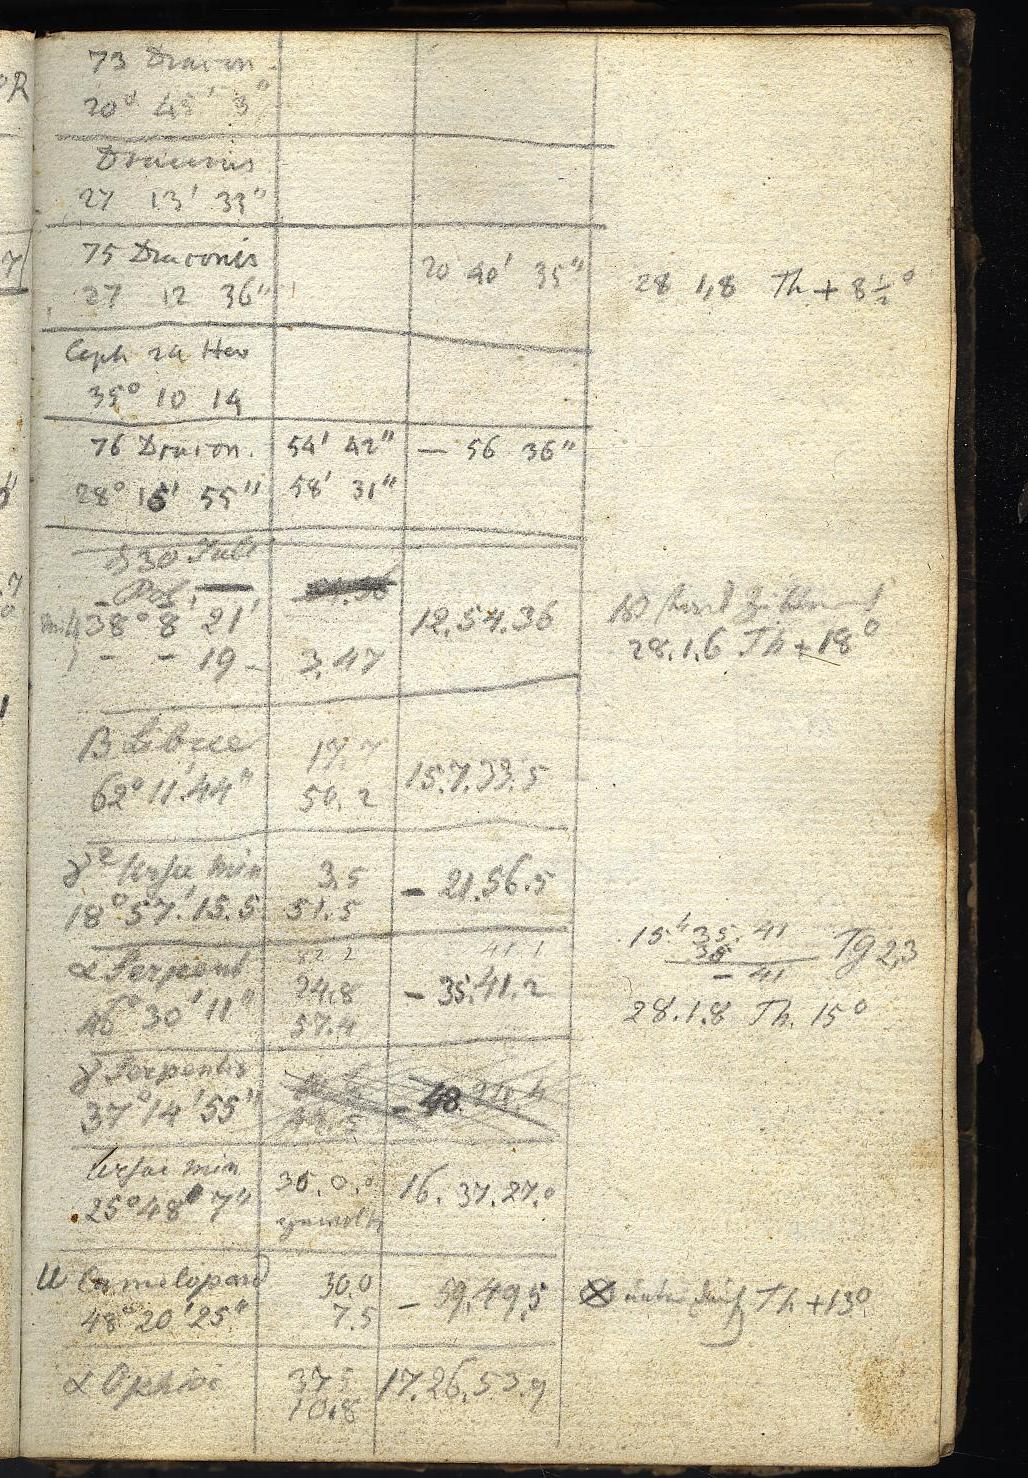 73 Dracon.
20° 45' 3"
Draconis
27 13' 33"
75 Draconis
27 12 36"
20 40' 35"
28 1,8 Th + 8 1/2°
Ceph 24 Hev
35° 10 14
76 Dracon. 54' 42" — 56 36"
28° 15' 55" 58' 31"
Pol.
38° 8' 21'
12.54.36
— — 19 — 3.47
28.1.6 Th + 18°
β Librae 17.7
62° 11'.44" 50.2
15.7.33.5
γ² Ursae min 3.5
18° 57'.15.5 51.5
— 21.56.5
α Serpent 24.8
46° 30' 11" 57.4
— 35.41.2
15' 35. 41
— 41
Tg 2,3
28.1.8 Th. 15°
γ Serpentis
37° 14' 55"
Ursae min 30.0.0
25° 48' 7"
16. 37.27.0
Camelopard 30.0
48° 20' 25" 7.5
— 59.49.5
Th + 13°
α Ophiu 37.5
10.8
17.26.53.9